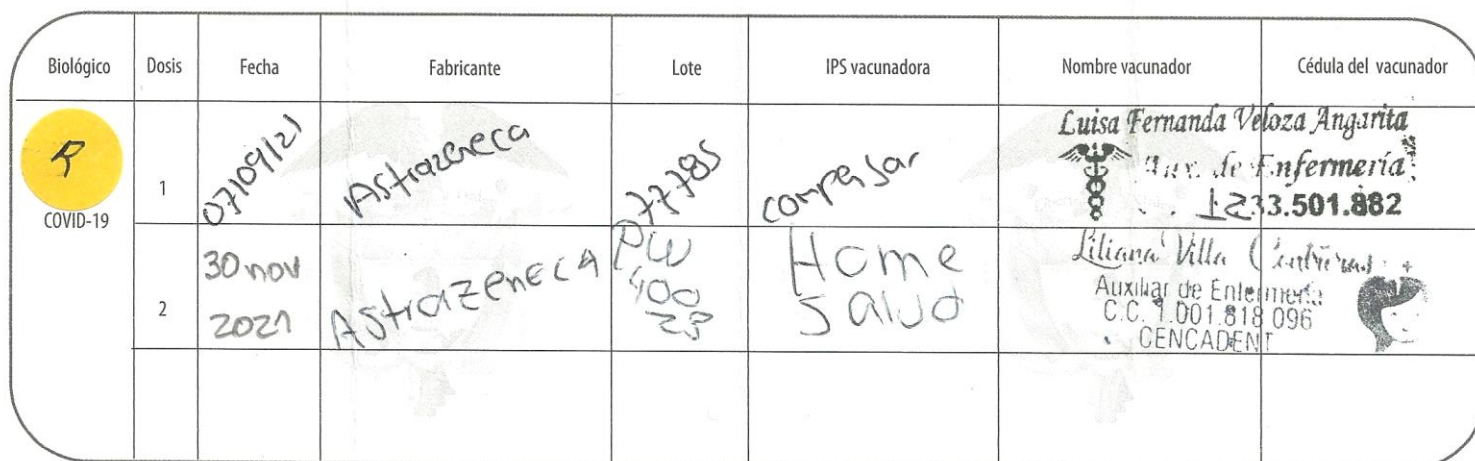 Biológico Dosis Fecha Fabricante Lote IPS vacunadora Nombre vacunador Cédula del vacunador
R
COVID-19
1 07/09/21 Astrazeneca P77785 compensar
Luisa Fernanda Veloza Angarita
Aux. de Enfermería
1233.501.882
2 30 nov 2021 AstrazenecA PW 400 Home Salud
Liliana Villa
Auxiliar de Enfermería
C.C. 1.001.818.096
CENCADENT